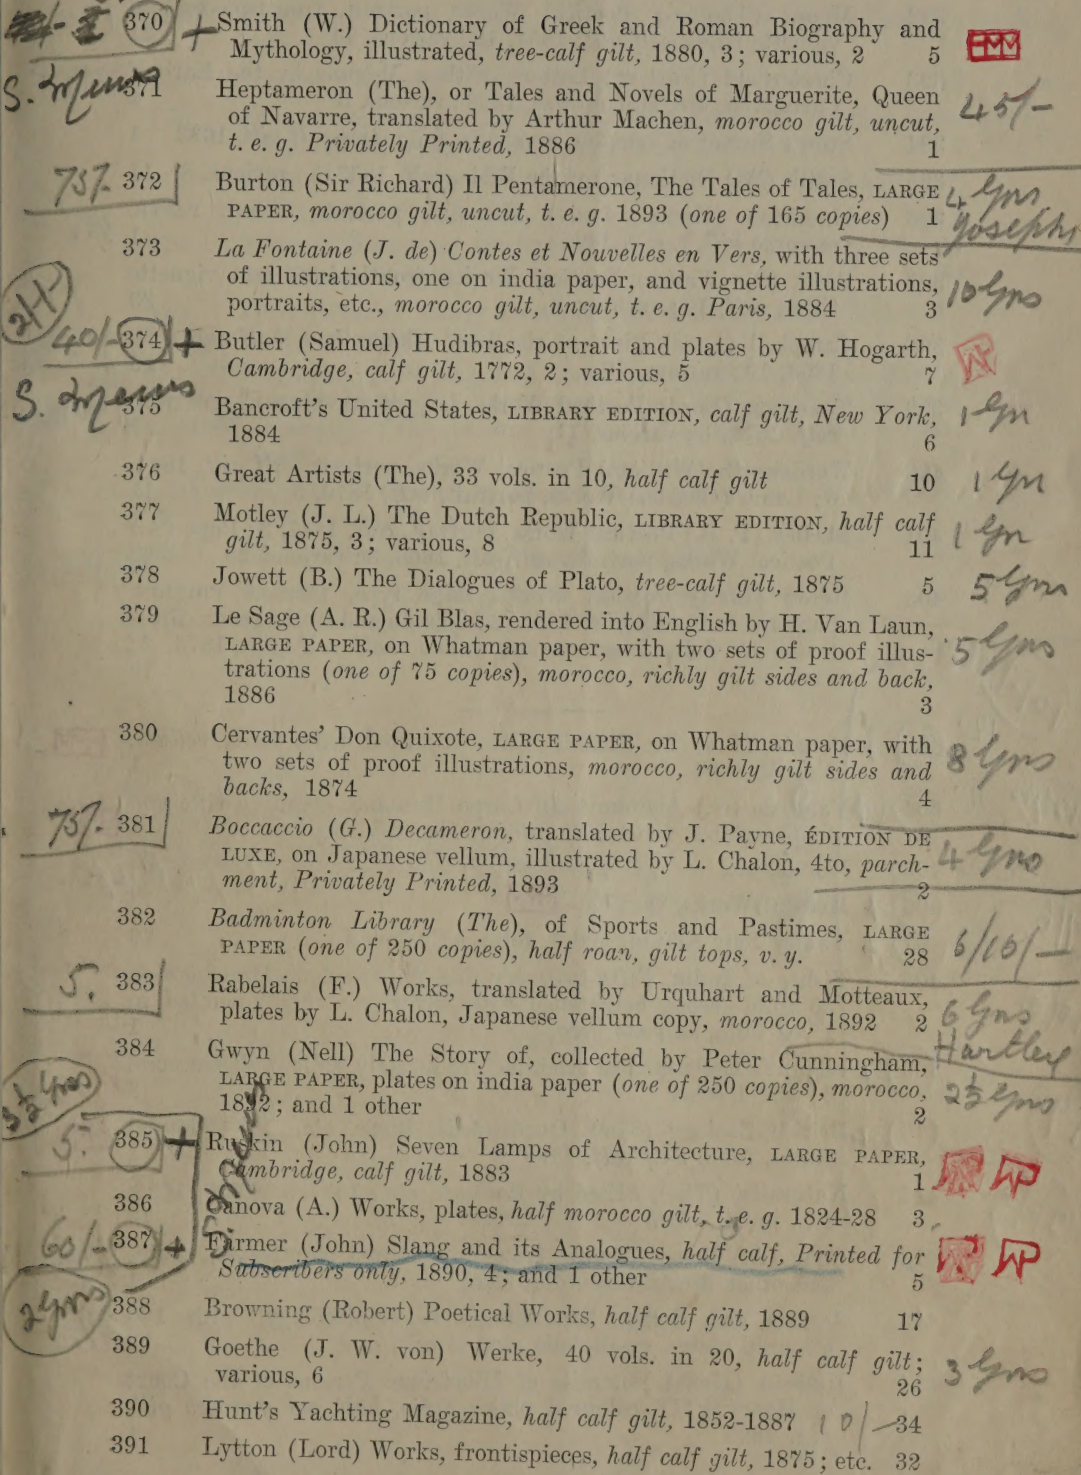 370 + Smith (W.) Dictionary of Greek and Roman Biography and
Mythology, illustrated, tree-calf gilt, 1880, 3; various, 2 5
371 Heptameron (The), or Tales and Novels of Marguerite, Queen 45/-
of Navarre, translated by Arthur Machen, morocco gilt, uncut,
t. e. g. Privately Printed, 1886 1
75/- 372 Burton (Sir Richard) Il Pentamerone, The Tales of Tales, LARGE 4 Gns
PAPER, morocco gilt, uncut, t. e. g. 1893 (one of 165 copies) 1 Josephs
373 La Fontaine (J. de) Contes et Nouvelles en Vers, with three sets
of illustrations, one on india paper, and vignette illustrations, 10 Gns
portraits, etc., morocco gilt, uncut, t. e. g. Paris, 1884 3
40/- 374 + Butler (Samuel) Hudibras, portrait and plates by W. Hogarth,
Cambridge, calf gilt, 1772, 2; various, 5 7
375 Bancroft's United States, LIBRARY EDITION, calf gilt, New York, 1 Gn
1884 6
376 Great Artists (The), 33 vols. in 10, half calf gilt 10 1 Gn
377 Motley (J. L.) The Dutch Republic, LIBRARY EDITION, half calf 1 Gn
gilt, 1875, 3; various, 8 11
378 Jowett (B.) The Dialogues of Plato, tree-calf gilt, 1875 5 5 Gns
379 Le Sage (A. R.) Gil Blas, rendered into English by H. Van Laun,
LARGE PAPER, on Whatman paper, with two sets of proof illus- 5 Gns
trations (one of 75 copies), morocco, richly gilt sides and back,
1886 3
380 Cervantes' Don Quixote, LARGE PAPER, on Whatman paper, with
two sets of proof illustrations, morocco, richly gilt sides and 8 Gns
backs, 1874 4
75/- 381 Boccaccio (G.) Decameron, translated by J. Payne, ÉDITION DE
LUXE, on Japanese vellum, illustrated by L. Chalon, 4to, parch- 4 Gns
ment, Privately Printed, 1893 2
382 Badminton Library (The), of Sports and Pastimes, LARGE
PAPER (one of 250 copies), half roan, gilt tops, v. y. 28 6/10/-
5. 383 Rabelais (F.) Works, translated by Urquhart and Motteaux,
plates by L. Chalon, Japanese vellum copy, morocco, 1892 2 6 Gns
384 Gwyn (Nell) The Story of, collected by Peter Cunningham, Hartley
LARGE PAPER, plates on india paper (one of 250 copies), morocco, 2½ Gns
1892; and 1 other 2
5. 385 + Ruskin (John) Seven Lamps of Architecture, LARGE PAPER,
Cambridge, calf gilt, 1883 1
386 Canova (A.) Works, plates, half morocco gilt, t. e. g. 1824-28 3
60/- 387 + Farmer (John) Slang and its Analogues, half calf, Printed for
Subscribers only, 1890, 4; and 1 other 5
2 Gns 388 Browning (Robert) Poetical Works, half calf gilt, 1889 17
389 Goethe (J. W. von) Werke, 40 vols. in 20, half calf gilt; 3 Gns
various, 6 26
390 Hunt's Yachting Magazine, half calf gilt, 1852-1887 10/- 34
391 Lytton (Lord) Works, frontispieces, half calf gilt, 1875; etc. 32